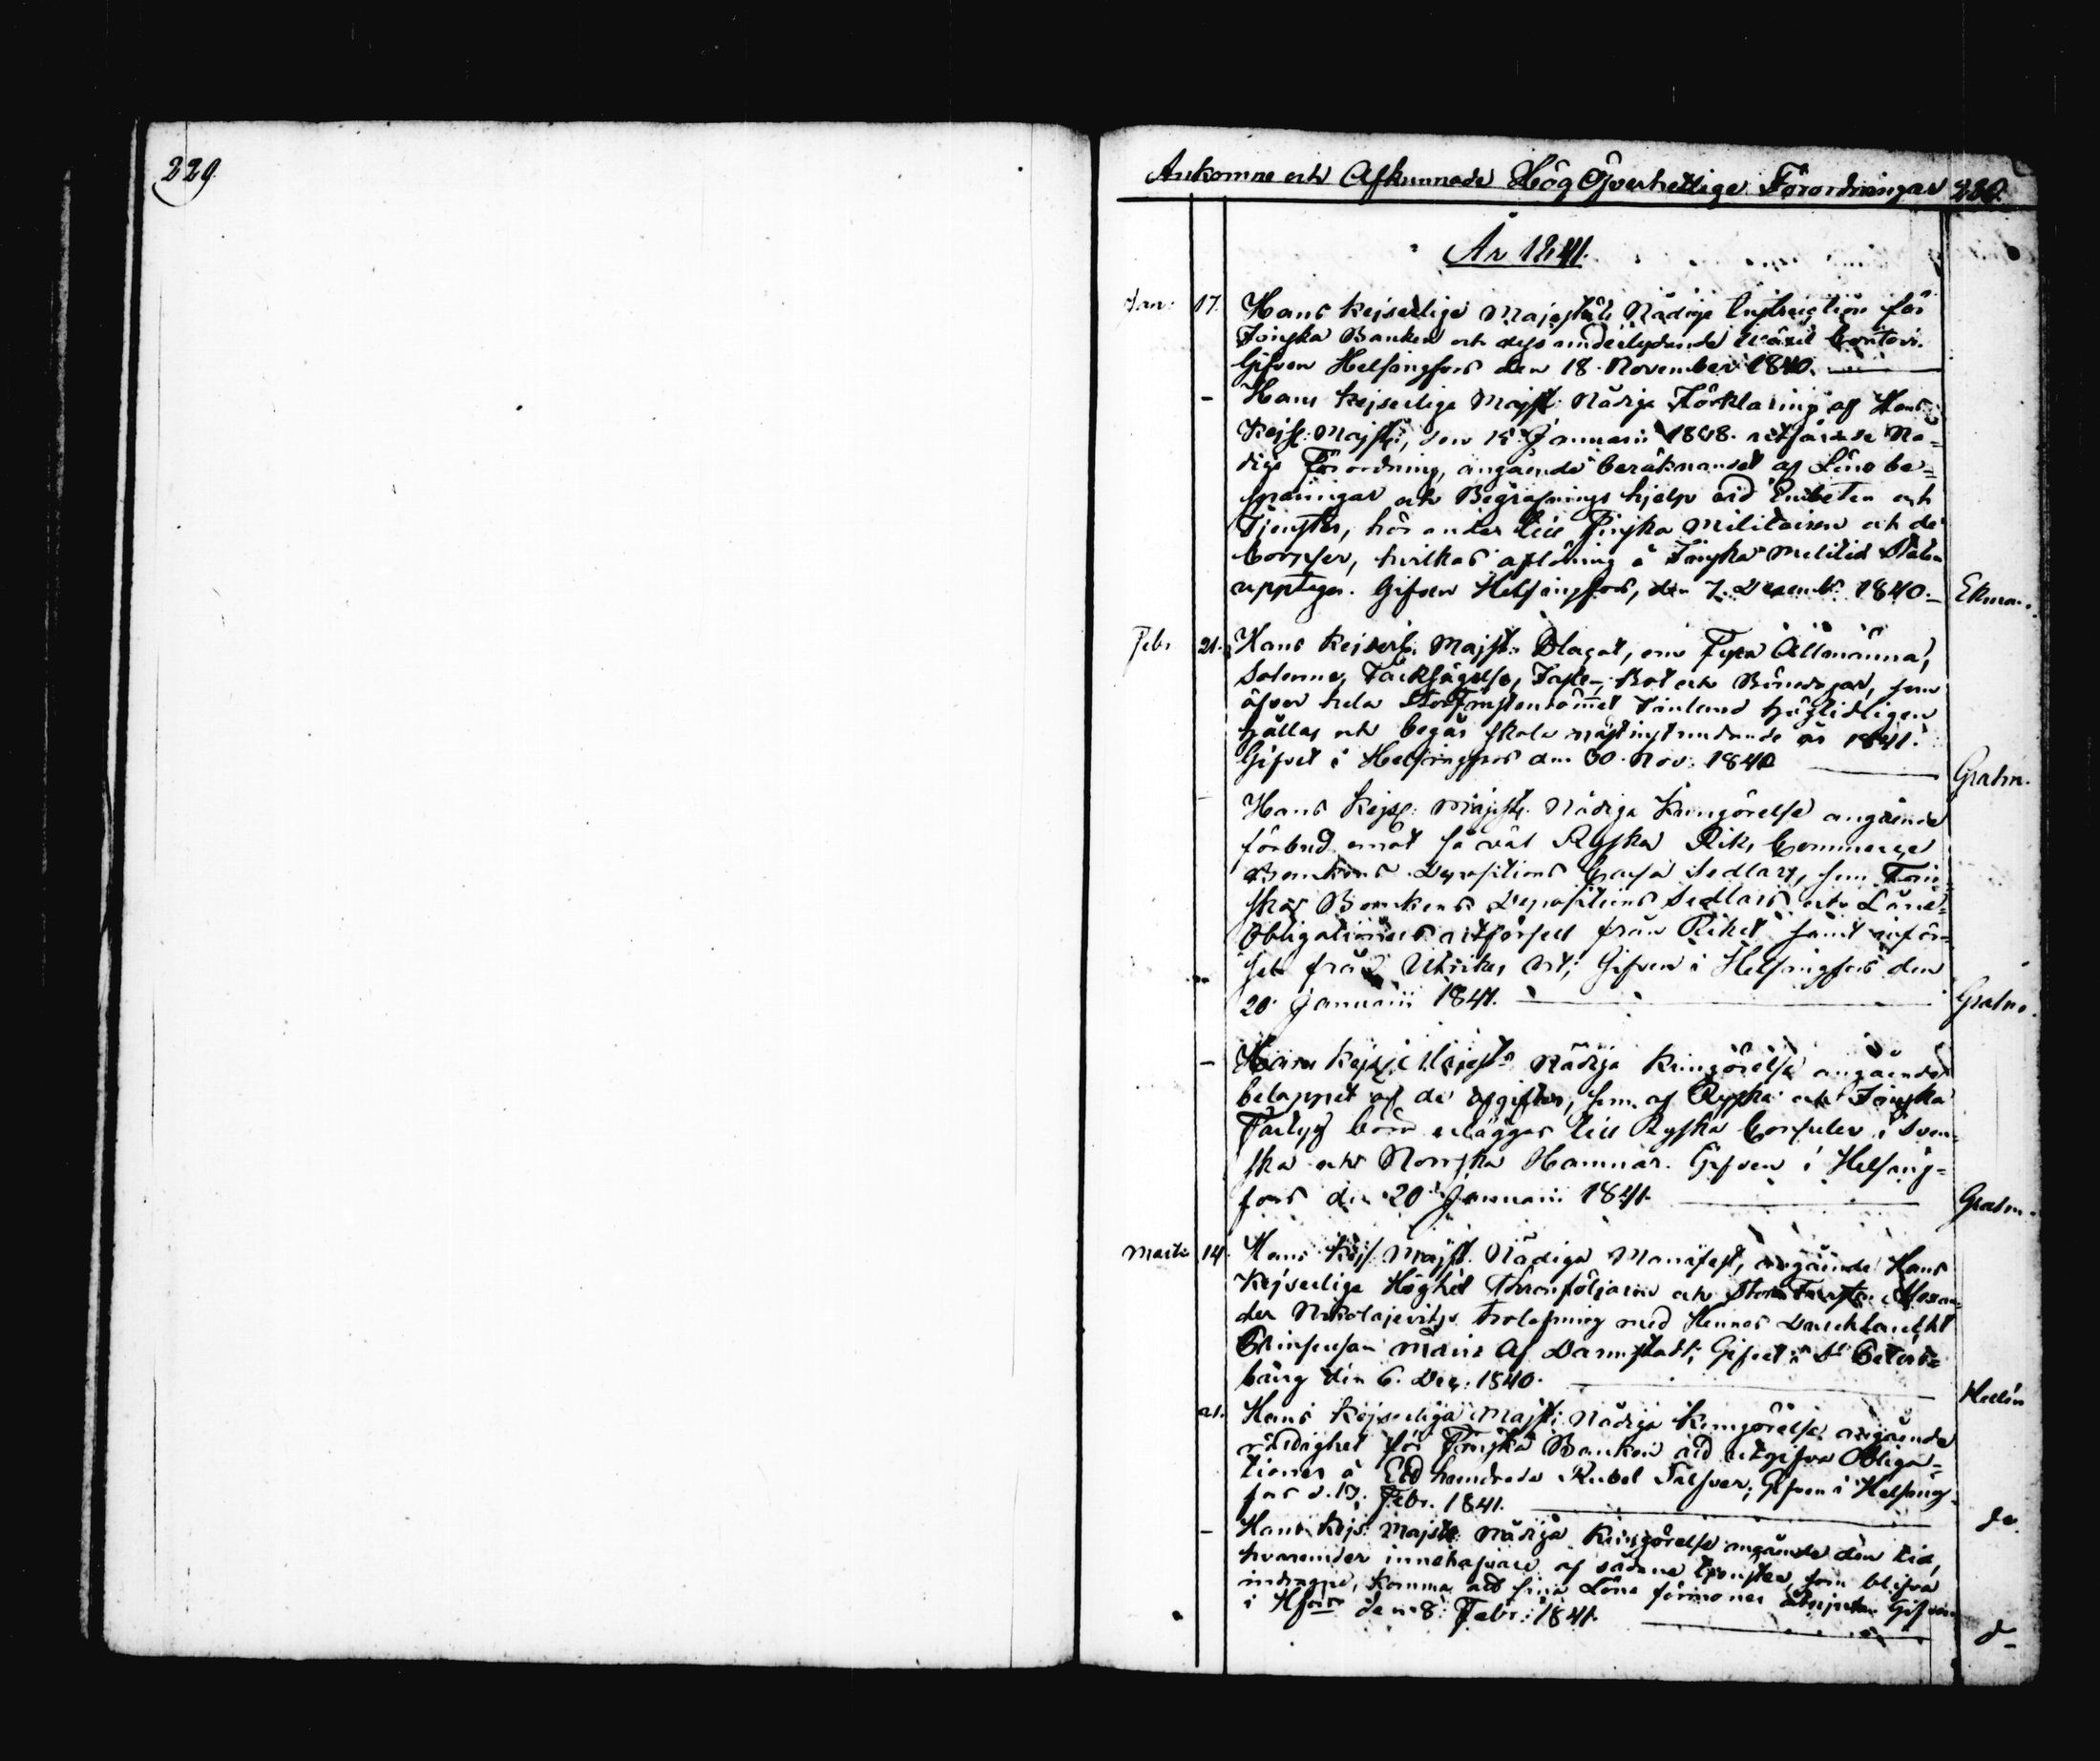 229.
Ankomne och Afkunnade Hög Öfverhetlige Förordningar 230.
År 1841.
Jan: 17. Hans Kejserlige Majestäts Nådige Instruction för
Finska Banken och dess underlydande Wäxel Contoir.
Gifven Helsingfors den 18. November 1840.
- Hans Kejserlige Majst: Nådige Förklaring af Hans
Kejs: Majst:, den 15 Januarii 1838. utfärdade Nå-
dige Förordning, angående beräknandet af Löne be-
sparingar och Begrafnings hjelp vid Embeten och
Tjenster, hörande till Finska Militairen och de
Corpser, hvilkas aflöning å Finska Militie Staten
upptages. Gifven Helsingfors, den 7. Decemb: 1840. Ekman.
Febr 21. Hans Kejserl: Majst: Placat, om Fyra Allmänna,
Solenne, Tacksägelse, Faste-, Bot och Bönedagar, som
öfver hela StorFurstendömet Finland högtidligen
hållas och begås skola nästinstundande år 1841.
Gifvet i Helsingfors den 30. Nov: 1840 Grahn.
- Hans Kejs: Majst: Nådiga Kungörelse angående
förbud emot så väl Ryska Riks Commerce
Bankens Depositions Cassa Sedlars, som Fin-
ska Bankens Depositions Sedlars och Låne-
Obligationers utförsel från Riket samt inför-
sel från Utrikes ort; Gifven i Helsingfors den
20 Januarii 1841. Grahn.
- Hans Kejs: Majest: Nådiga Kungörelse angående
beloppet af de afgifter, som af Ryska och Finska
Fartyg böra erläggas till Ryska Consuler i Sven-
ska och Norrska Hamnar. Gifven i Helsing-
fors den 20 Januarii 1841. Grahn.
Martii 14. Hans Kejs: Majst: Nådiga Manifest, angående Hans
Kejserlige Höghet Thronföljaren och StorFursten Alexan-
der Nikolajevitjs trolofning med Hennes Durchlaucht
Prinsessan Maria af Darmstadt; Gifvet i St Peters-
burg den 6. Dec: 1840. Hedén
21. Hans Kejserliga Majst: Nådiga Kungörelse angående
rättighet för Finska Banken att utgifva Obliga-
tioner å Ett hundrade Rubel Silfver; Gifven i Helsing-
fors d. 17. Febr. 1841. do.
- Hans Kejs: Majsts: Nådiga Kungörelse angående den tid,
hvarunder innehafvare af sådane tjenster, som blifva
indragne, komma att sina Löne förmoner åtnjuta. Gifven
i Hfors den 8. Febr: 1841. do